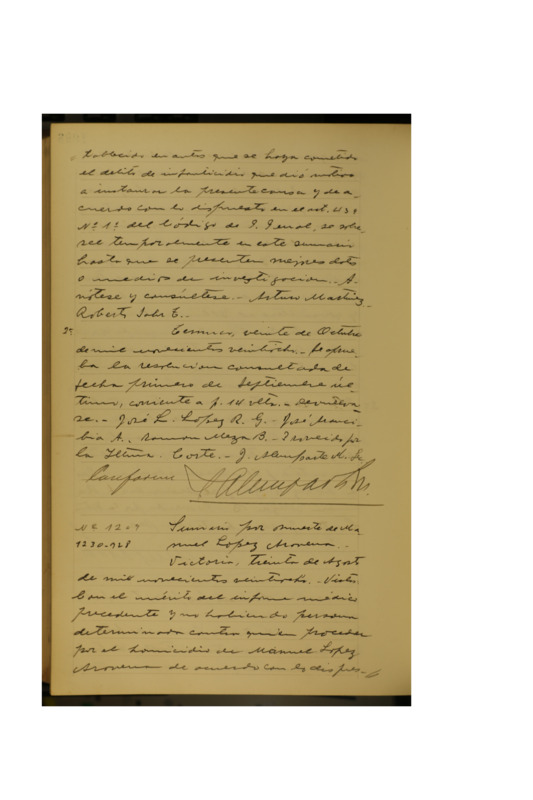 tablecido en autos que se haya cometido
el delito de infanticidio que dió motivo
a instaurar la presente causa y de a-
cuerdo con lo dispuesto en el art.
Nº 1º del Código de P. Penal, se sobre-
see temporalmente en este sumario
hasta que se presenten mejores datos
o medios de investigación.- A-
nótese y consúltese.- Arturo Martínez.
Roberto E.-
2º
Temuco, veinte de Octubre
de mil novecientos veintiocho.- Se aprue-
ba la resolución consultada de
fecha primero de Septiembre úl-
timo, corriente a f. 14 vlta.- Devuélva-
se.- José L. López R. G.- José
A., Ramon Meza B.- Proveido por
la Iltma. Corte.- J. Alemparte
Conforme
Nº
1230-928
Sumario por muerte de Ma
nuel Lopez
Victoria, treinta de Agosto
de mil novecientos veintiocho.- Vistos:
Con el mérito del informe médico
precedente y no habiendo persona
determinada contra quien proceder
por el homicidio de Manuel Lopez
de acuerdo con lo dispues-